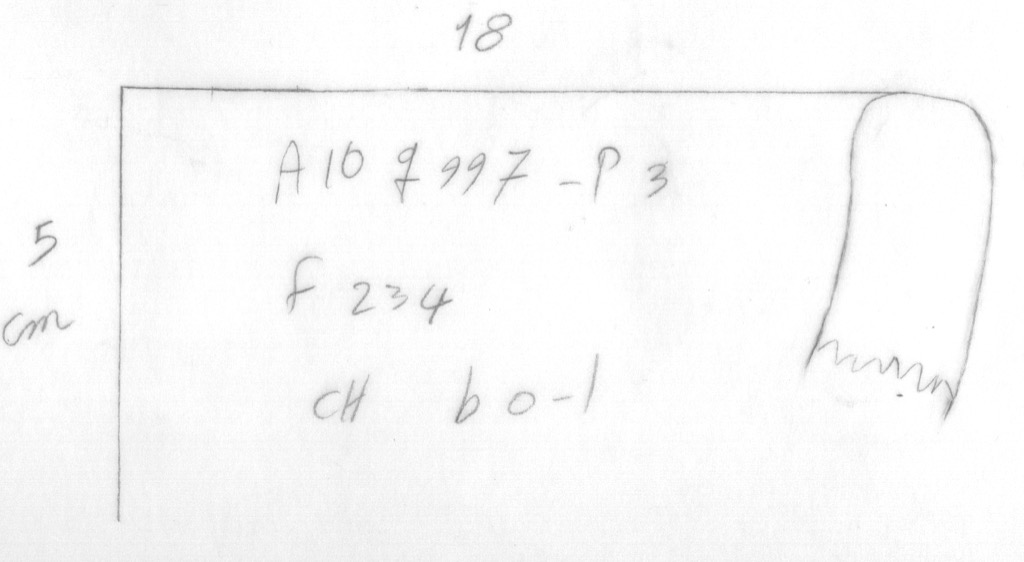 18
A10 9997-P 3
5
cm
f 234
CH bo-1